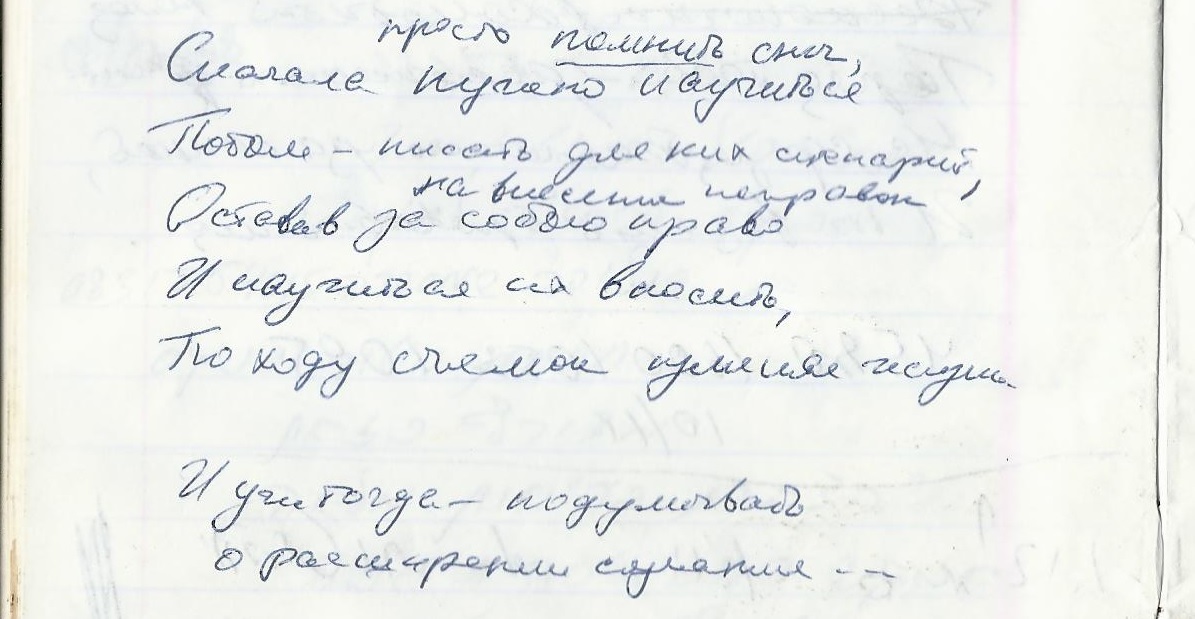 просто помнить сны,
Сначала нужно научиться
Потом – писать для них сценарий,
на внесение поправок
Оставив за собою право
И научиться их вносить,
По ходу съемок изменяя
И уж тогда – подумывать
о расширении сознания --